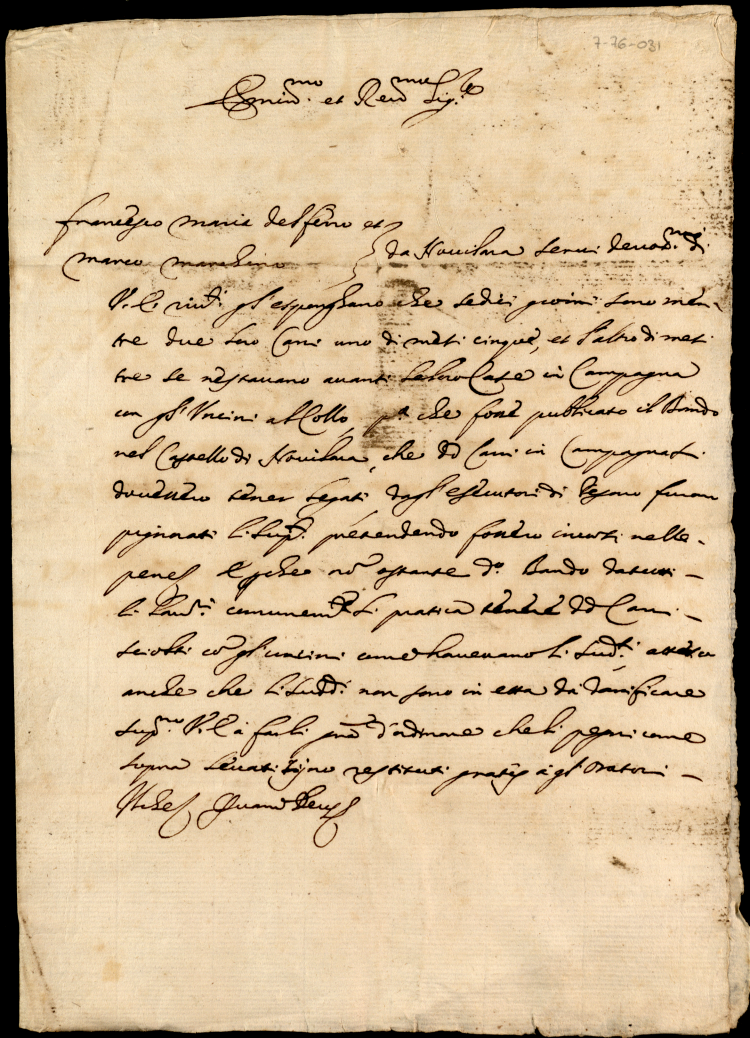 7-76-031
Emin.mo et Reu.mo Sig.re
Francesco Maria del ferro et
Marco Marchino } da Nouilara serui deuot.mi di
V. E. riu.ti gl'espongano che sedici giorni sono men-
tre due loro Cani uno di mesi cinque, et l'altro di mesi
tre se ne stauano auanti le loro Case in Campagna
con gl'Uncini al Collo, p.a che fosse publicato il Bando
nel Castello di Nouilara, che dd. Cani in Campagna si
douessero tener legati dagl'esecutori di Pesaro furon
pignorati li sup.ti pretendendo fossero incorsi nelle
pene, e perche nō ostante d.o Bando da tutti
li comunem.te si pratica tenere dd Cani
sciolti cō gl'uncini come haueuano li sud.ti atteso
anche che li sudd.i non sono in età da danificare
sup.no V. E. à farli d'ordinare che li pegni come
sopra leuati sijno restituti gratis à gl'Oratori
Quam Deus